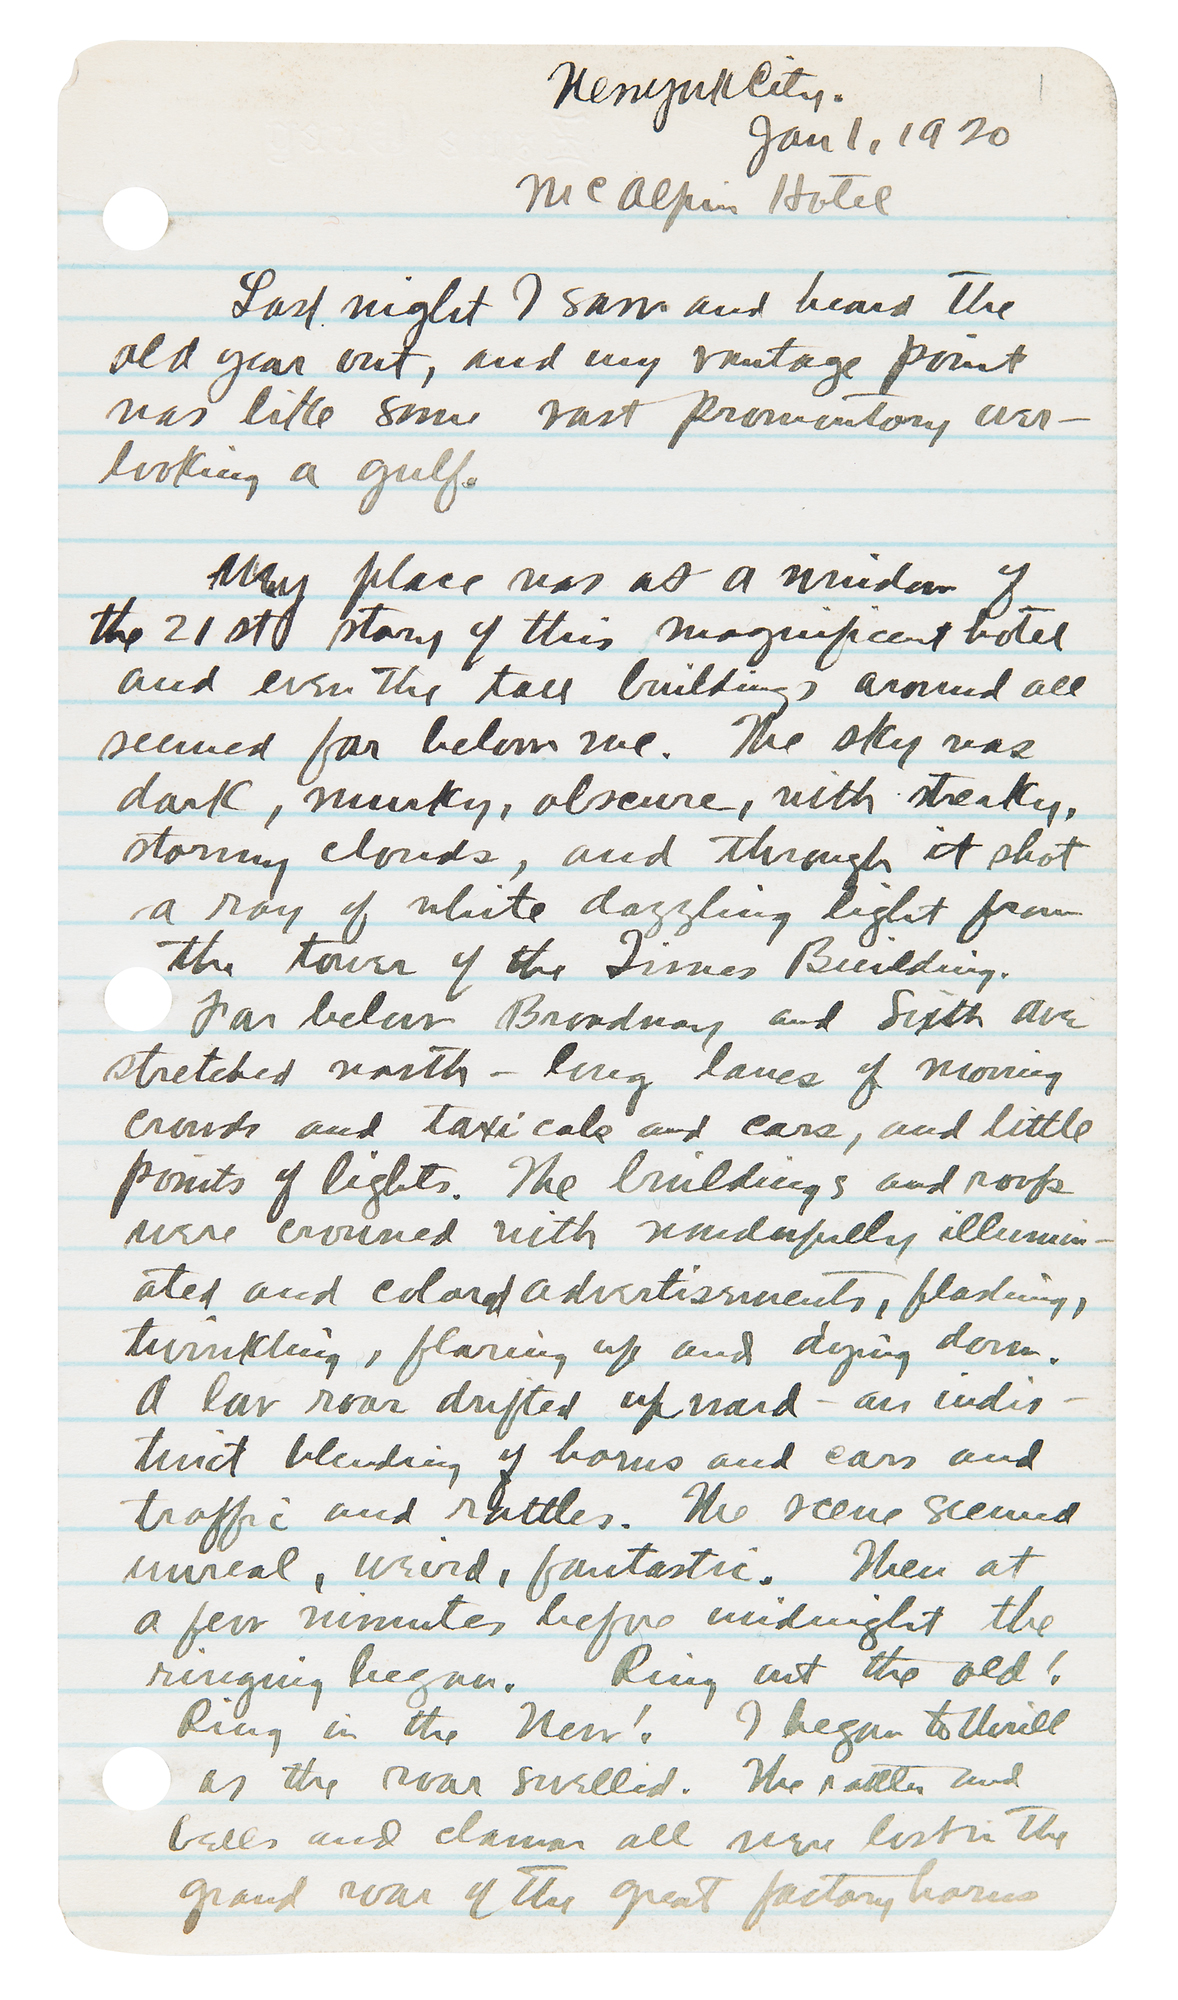 New York City.
Jan 1, 1920
McAlpin Hotel
Last night I saw and heard the
old year out, and my vantage point
was like some vast promontory over-
looking a gulf.
My place was at a window of
the 21st story of this magnificent hotel
and even the tall buildings around all
seemed far below me. The sky was
dark, murky, obscure, with streaky,
stormy clouds, and through it shot
a ray of white dazzling light from
the tower of the Times Building.
Far below Broadway and Sixth Ave
stretched north - long lanes of moving
crowds and taxicabs and cars, and little
points of lights. The buildings and roofs
were crowned with wonderfully illumin-
ated and colored advertisements, flashing,
twinkling, flaring up and dying down.
A low roar drifted upward - an indis-
tinct blending of horns and cars and
traffic and rattles. The scene seemed
unreal, weird, fantastic. Then at
a few minutes before midnight the
ringing began. Ring out the old!
Ring in the New! I began to thrill
as the roar swelled. The rattles and
bells and clamor all were lost in the
grand roar of the great factory horns